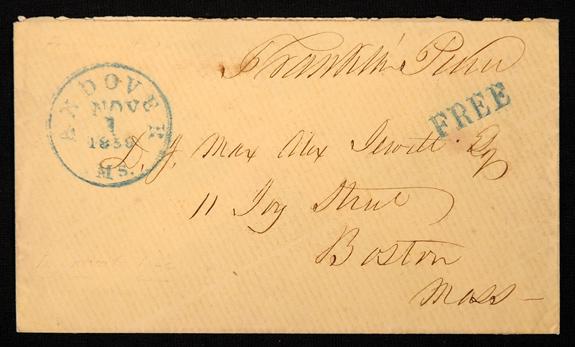 Franklin Pierce
ANDOVER
NOV
1
1859
MS.
FREE
Dr J. Max Alex Jewett Esq
11 Joy Street
Boston
Mass